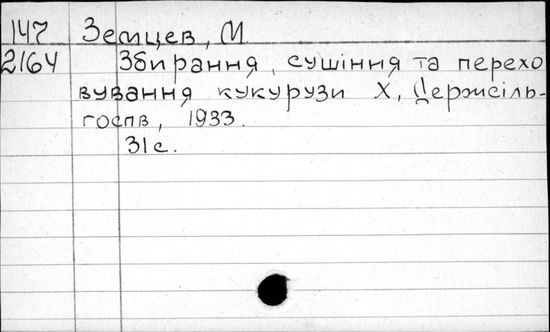 147 Земцев, М
2164 Збирання, сушіння та перехо
вування кукурузи Х, Держсіль-
госпв, 1933.
31 с.